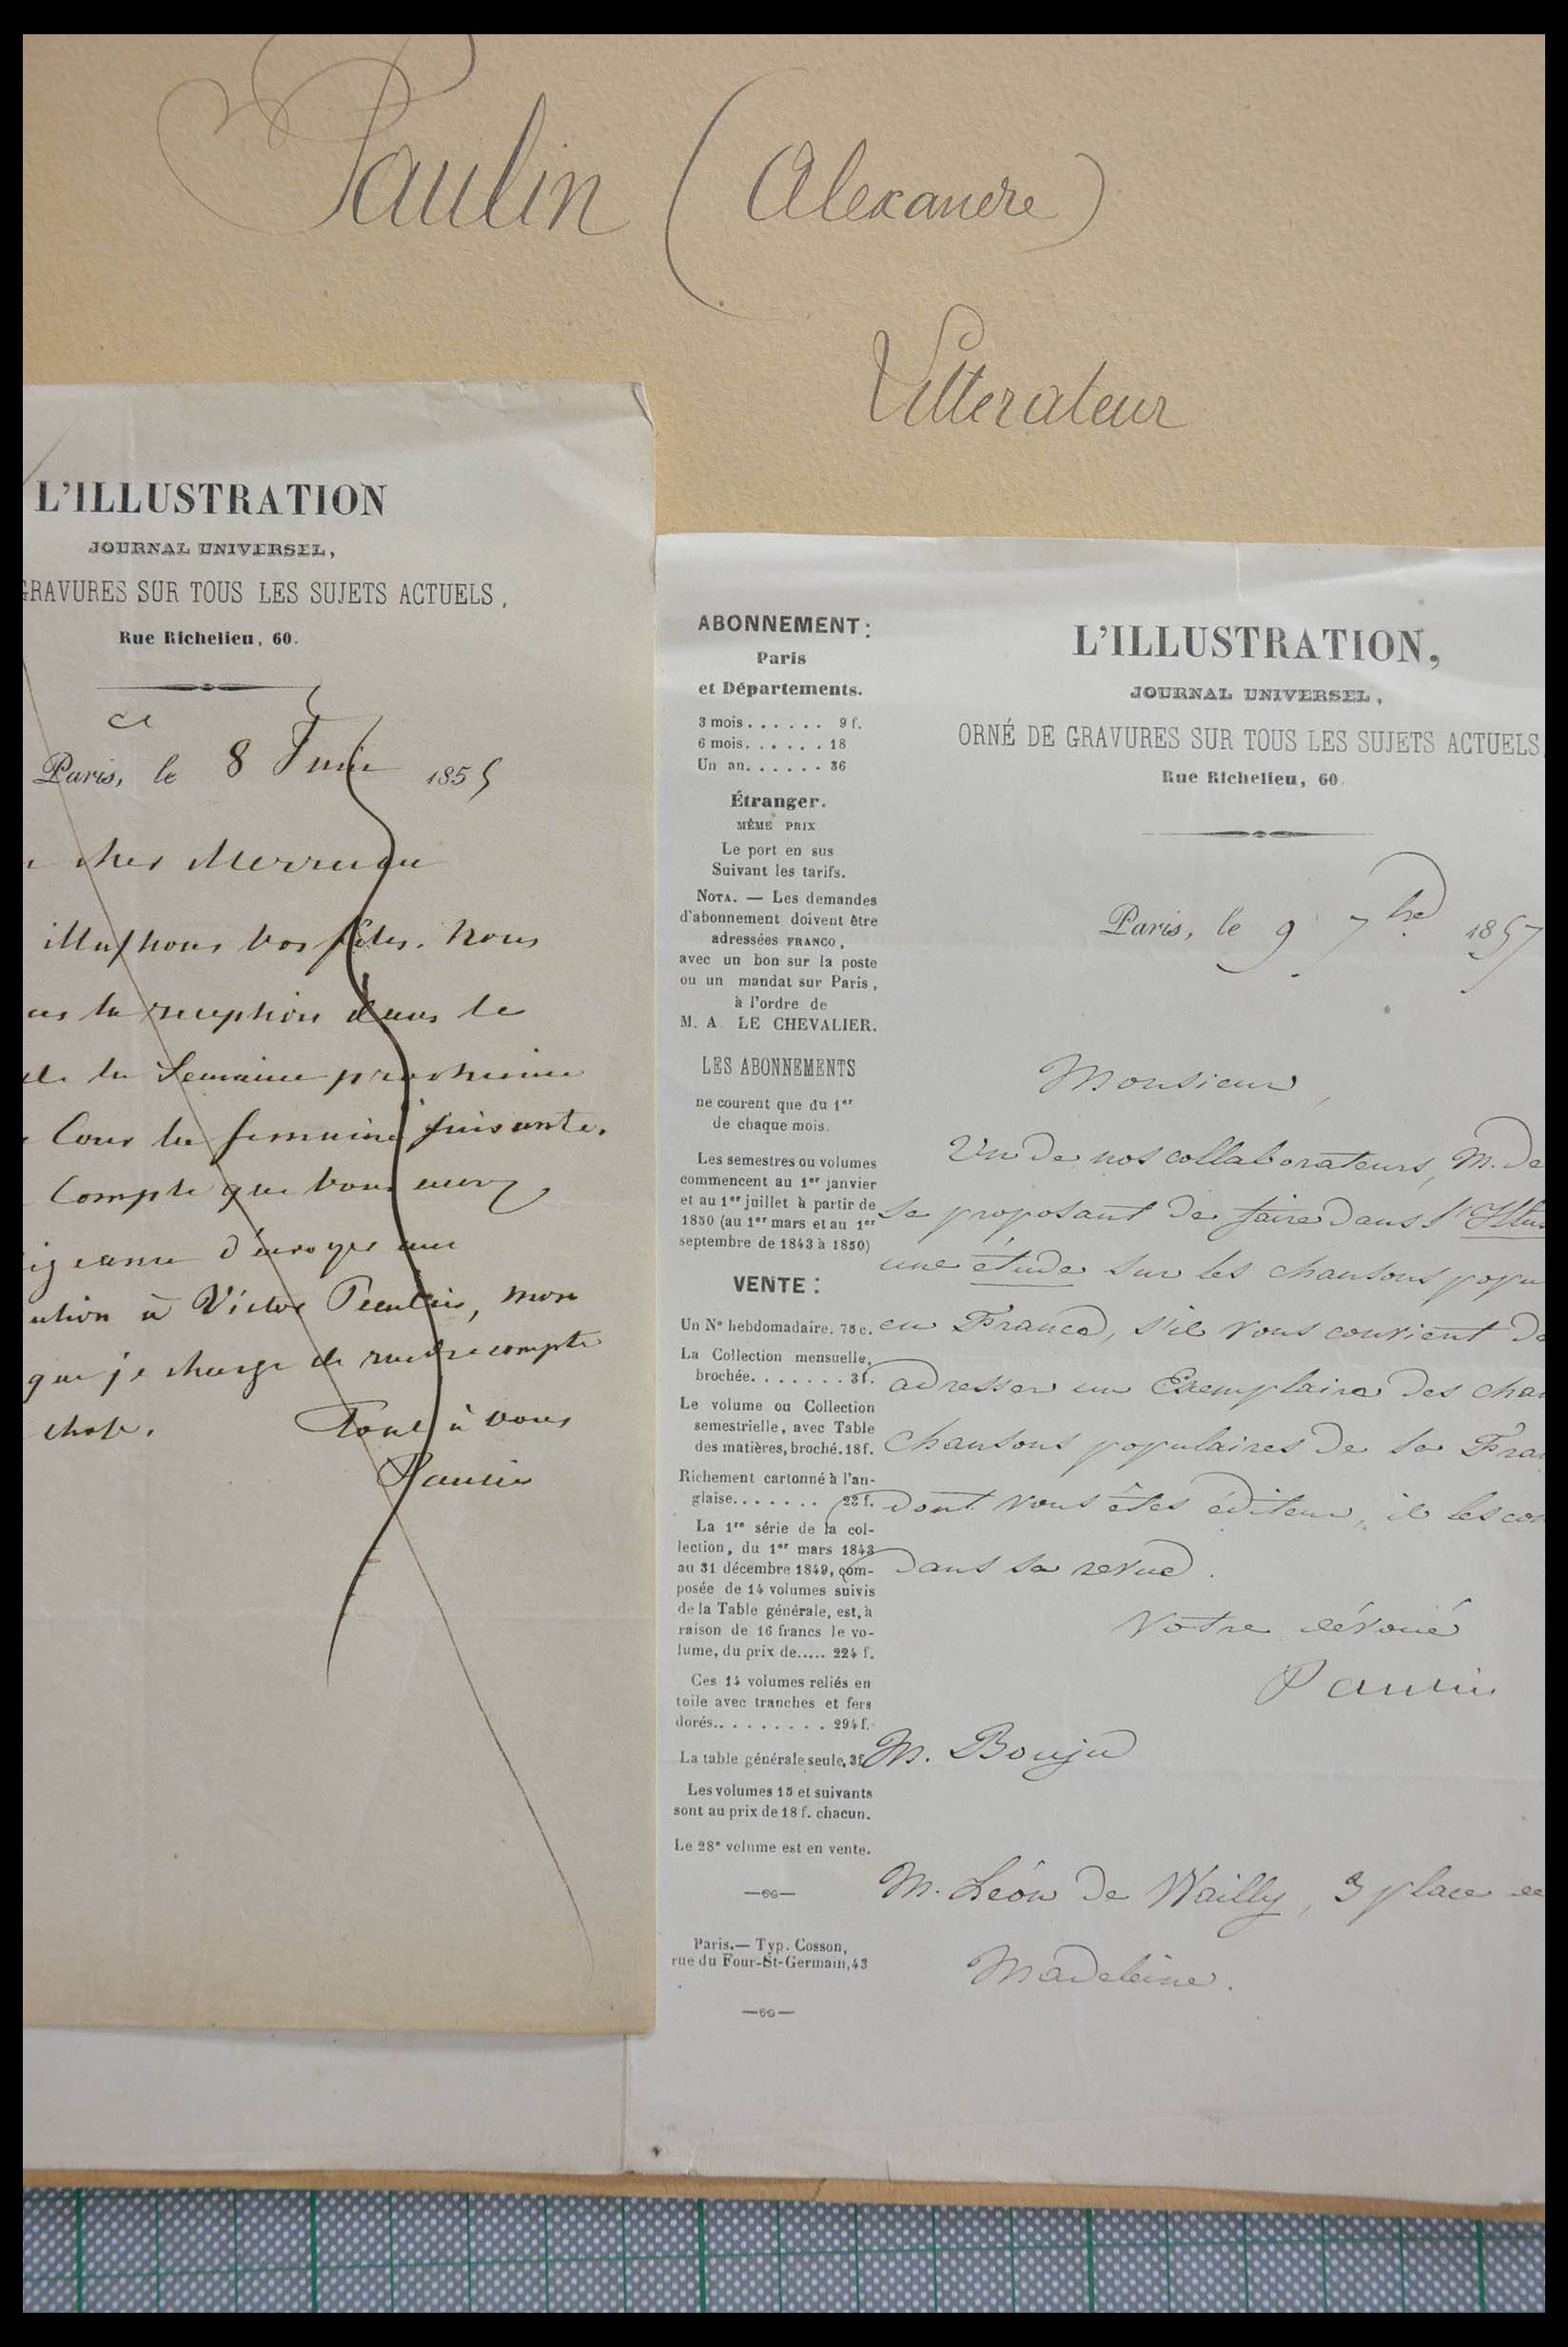 Paulin (Alexandre)
Littérateur
L'ILLUSTRATION
JOURNAL UNIVERSEL,
GRAVURES SUR TOUS LES SUJETS ACTUELS,
Rue Richelieu, 60.
Paris, le 8 Juin 1855
cher Merruau
illustrons vos fêtes. Nous
la reception dans le
de la Semaine prochaine
Cour la semaine suivante.
Compte que vous aurez
d'envoyer une
à Victor Paulin, mon
que je charge de rendre compte
chose. Tout à vous
Paulin
ABONNEMENT:
Paris
et Départements.
3 mois...... 9 f.
6 mois...... 18
Un an...... 36
Étranger.
MÊME PRIX
Le port en sus
Suivant les tarifs.
NOTA. — Les demandes
d'abonnement doivent être
adressées FRANCO,
avec un bon sur la poste
ou un mandat sur Paris,
à l'ordre de
M. A. LE CHEVALIER.
LES ABONNEMENTS
ne courent que du 1er
de chaque mois.
Les semestres ou volumes
commencent au 1er janvier
et au 1er juillet à partir de
1850 (au 1er mars et au 1er
septembre de 1843 à 1850)
VENTE:
Un N° hebdomadaire. 75 c.
La Collection mensuelle,
brochée....... 3 f.
Le volume ou Collection
semestrielle, avec Table
des matières, broché. 18 f.
Richement cartonné à l'an-
glaise....... 23 f.
La 1re série de la col-
lection, du 1er mars 1843
au 31 décembre 1849, com-
posée de 14 volumes suivis
de la Table générale, est, à
raison de 16 francs le vo-
lume, du prix de..... 224 f.
Ces 14 volumes reliés en
toile avec tranches et fers
dorés......... 294 f.
La table générale seule, 3 f.
Les volumes 15 et suivants
sont au prix de 18 f. chacun.
Le 28e volume est en vente.
—69—
Paris.— Typ. Cosson,
rue du Four-St-Germain, 43
—69—
L'ILLUSTRATION,
JOURNAL UNIVERSEL,
ORNÉ DE GRAVURES SUR TOUS LES SUJETS ACTUELS
Rue Richelieu, 60
Paris, le 9 7bre 1857
Monsieur,
Un de nos collaborateurs, M. de
se proposant de faire dans l'Illus
une étude sur les chansons popu
en France, s'il vous convient de
adresser un Exemplaire des cha
chansons populaires de la Fran
dont vous êtes éditeur, il les co
dans sa revue.
Votre dévoué
Paulin
M. Bouju
M. Léon de Wailly, 3 place de
Madeleine.